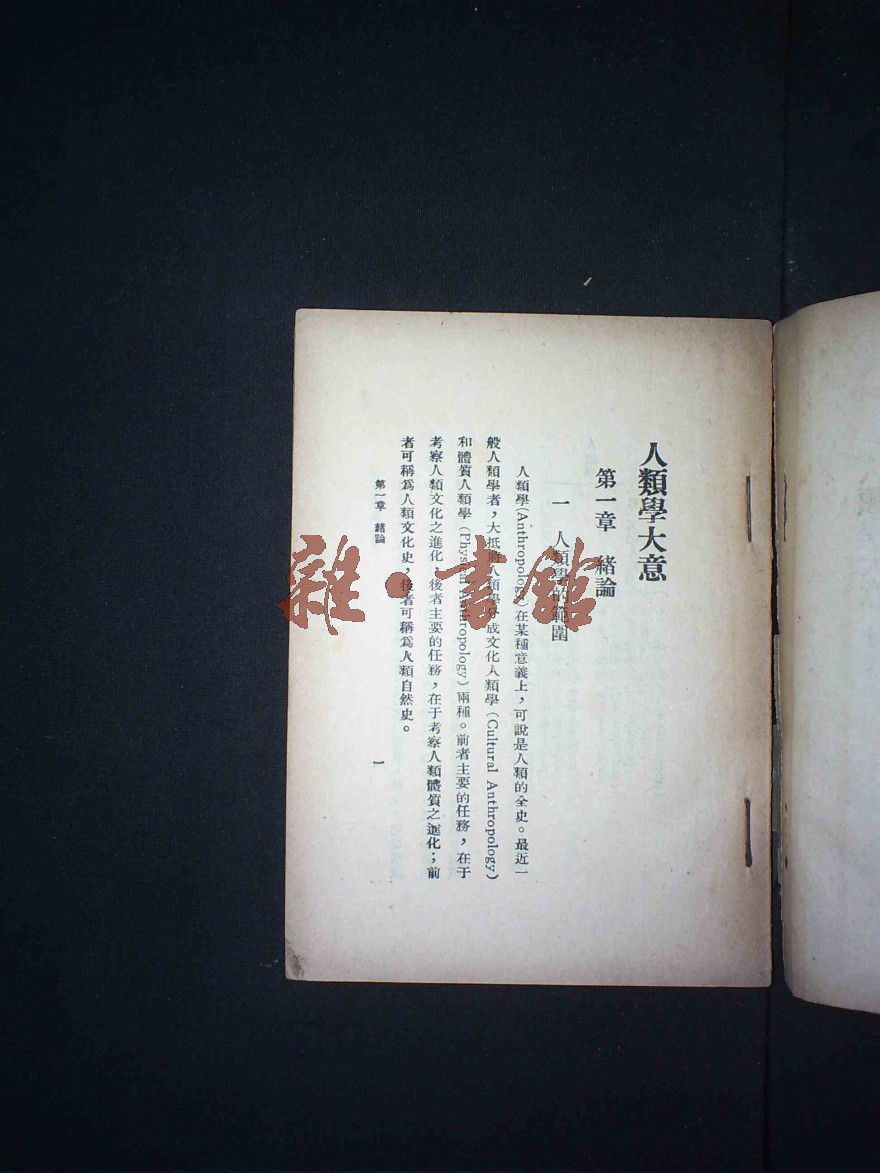 人類學大意
第一章　緒論
一　人類學的範圍
人類學(Anthropology)在某種意義上，可說是人類的全史。最近一
般人類學者，大抵將人類學分成文化人類學（Cultural Anthropology）
和體質人類學（Physical Anthropology）兩種。前者主要的任務，在于
考察人類文化之進化，後者主要的任務，在于考察人類體質之進化；前
者可稱爲人類文化史，後者可稱爲人類自然史。
第一章　緒論
一
雜·書館